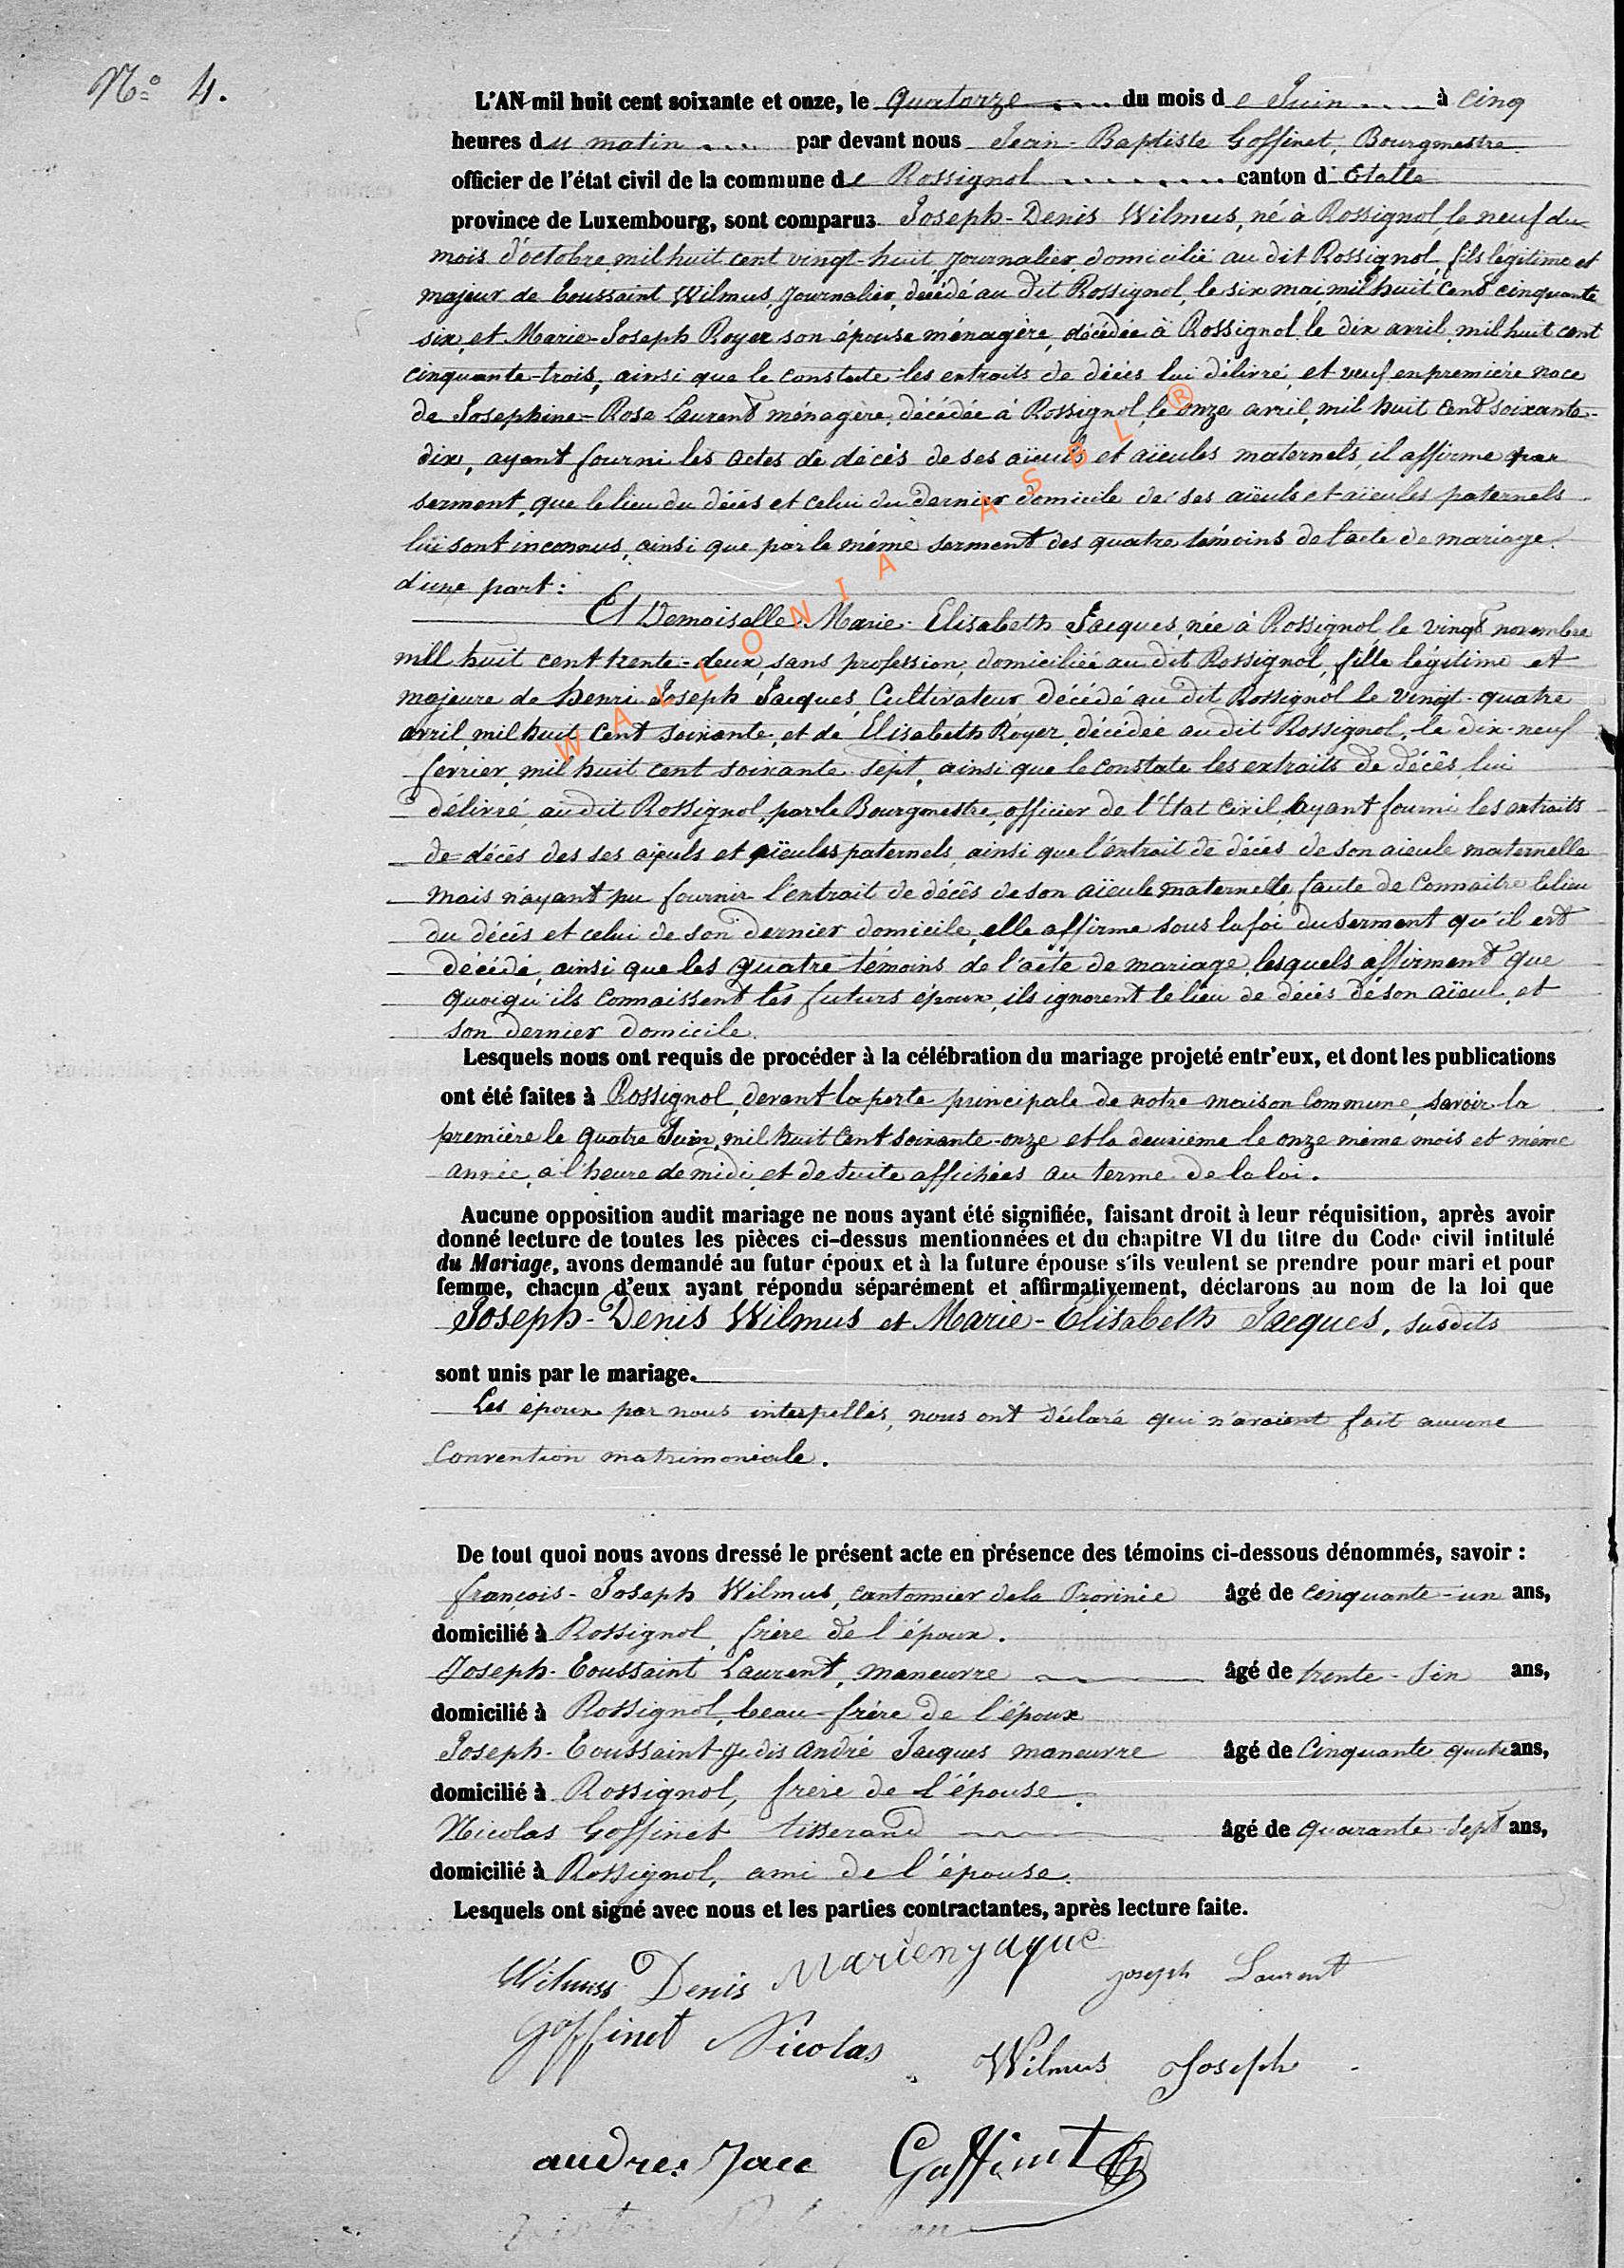 N° 4.
L'AN mil huit cent soixante et onze, le quatorze .... du mois de Juin .... à cinq
heures du matin .... par devant nous Jean-Baptiste Goffinet, Bourgmestre
officier de l'état civil de la commune de Rossignol ........ canton d'Etalle
province de Luxembourg, sont comparus Joseph-Denis Wilmus, né à Rossignol, le neuf du
mois d'octobre, mil huit cent vingt-huit, journalier, domicilié au dit Rossignol, fils légitime et
majeur de Toussaint Wilmus, Journalier, décédé au dit Rossignol, le six mai, mil huit cent cinquante
six, et Marie-Joseph Royer son épouse ménagère, décédée à Rossignol, le dix avril, mil huit cent
cinquante-trois, ainsi que le constate les extraits de décès lui délivré, et veuf en première noce
de Josephine-Rose Laurent ménagère, décédée à Rossignol, le onze avril, mil huit cent soixante-
dix, ayant fourni les actes de décès de ses aïeuls et aïeules maternels, il affirme par
serment, que le lieu du décès et celui du dernier domicile de ses aïeuls et aïeules paternels
lui sont inconnus, ainsi que par le même serment des quatre témoins de l'acte de mariage.
d'une part:
Et Demoiselle Marie-Elisabeth Jacques, née à Rossignol, le vingt novembre
mil huit cent trente-deux, sans profession, domiciliée au dit Rossignol, fille légitime et
majeure de henri-Joseph Jacques, Cultivateur, décédé au dit Rossignol le vingt-quatre
avril, mil huit cent soixante, et de Elisabeth Royer, décédée au dit Rossignol, le dix-neuf
fevrier, mil huit cent soixante-sept, ainsi que le constate les extraits de décès, lui
délivré au dit Rossignol, par le Bourgmestre, officier de l'Etat Civil, ayant fourni les extraits
de décès des ses aïeuls et aïeules paternels, ainsi que l'extrait de décès de son aïeule maternelle
mais n'ayant pu fournir l'extrait de décès de son aïeule maternelle, faute de connaitre le lieu
du décès et celui de son dernier domicile, elle affirme sous la foi du serment qu'il est
décédé, ainsi que les quatre témoins de l'acte de mariage, lesquels affirment que
quoiqu'ils connaissent les futurs époux, ils ignorent le lieu de décès de son aïeul, et
son dernier domicile.
Lesquels nous ont requis de procéder à la célébration du mariage projeté entr'eux, et dont les publications
ont été faites à Rossignol, devant la porte principale de notre maison Commune, savoir la
première le quatre Juin, mil huit cent soixante-onze et la deuxième le onze même mois et même
année, à l'heure de midi, et de suite affichées au terme de la loi.
Aucune opposition audit mariage ne nous ayant été signifiée, faisant droit à leur réquisition, après avoir
donné lecture de toutes les pièces ci-dessus mentionnées et du chapitre VI du titre du Code civil intitulé
du Mariage, avons demandé au futur époux et à la future épouse s'ils veulent se prendre pour mari et pour
femme, chacun d'eux ayant répondu séparément et affirmativement, déclarons au nom de la loi que
Joseph-Denis Wilmus et Marie-Elisabeth Jacques, susdits
sont unis par le mariage.
Les époux par nous interpellés, nous ont déclaré qui n'avaient fait aucune
Convention matrimoniale.
De tout quoi nous avons dressé le présent acte en présence des témoins ci-dessous dénommés, savoir :
françois-Joseph Wilmus, cantonnier de la Province âgé de cinquante-un ans,
domicilié à Rossignol, frère de l'époux.
Joseph-Toussaint Laurent, maneuvre âgé de trente-six ans,
domicilié à Rossignol, beau-frère de l'époux
Joseph-Toussaint je dis André Jacques maneuvre âgé de Cinquante quatre ans,
domicilié à Rossignol, frère de l'épouse.
Nicolas Goffinet tisserand âgé de quarante-sept ans,
domicilié à Rossignol, ami de l'épouse.
Lesquels ont signé avec nous et les parties contractantes, après lecture faite.
Wilmus Denis Marienjaque Joseph Laurent
Goffinet Nicolas Wilmus Joseph
andre Jacc Goffinet
WALLONIA ASBL ®